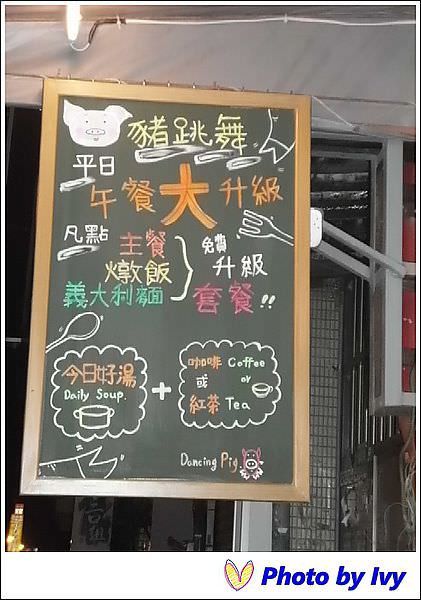 豬跳舞
平日
午餐大升級
凡點
主餐
燉飯
義大利麵
免費
升級
套餐!!
今日好湯
Daily Soup.
+
咖啡 Coffee
或 or
紅茶 Tea
Dancing Pig
Photo by Ivy